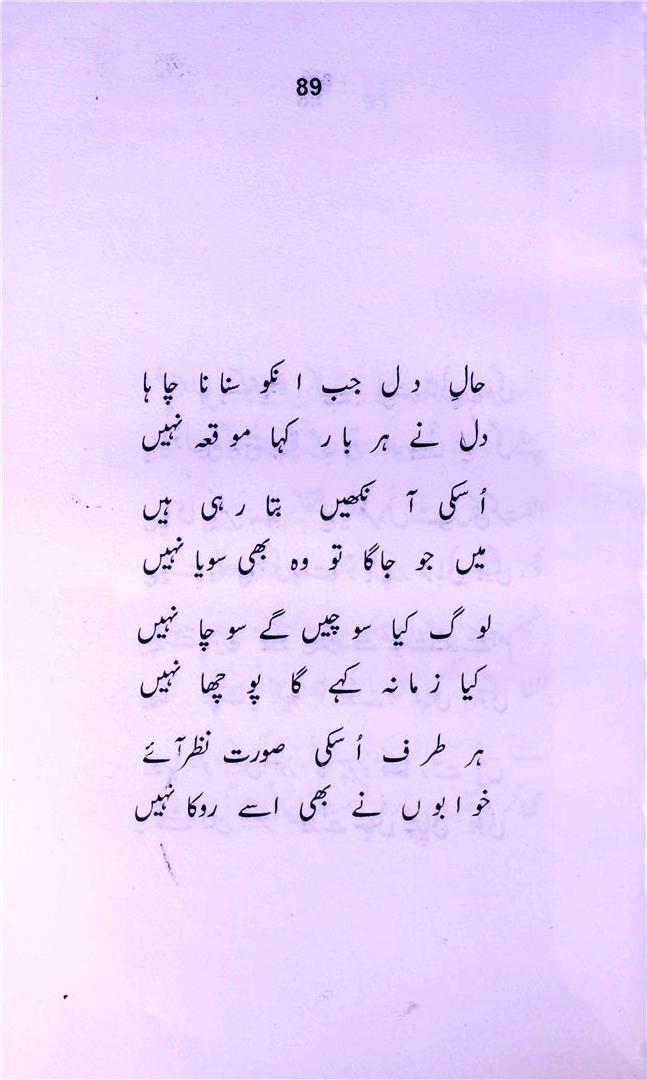 89
حالِ دل جب انکو سنانا چاہا
دل نے ہر بار کہا موقعہ نہیں
اُسکی آنکھیں بتا رہی ہیں
میں جو جاگا تو وہ بھی سویا نہیں
لوگ کیا سوچیں گے سوچا نہیں
کیا زمانہ کہے گا پوچھا نہیں
ہر طرف اُسکی صورت نظر آئے
خوابوں نے بھی اسے روکا نہیں